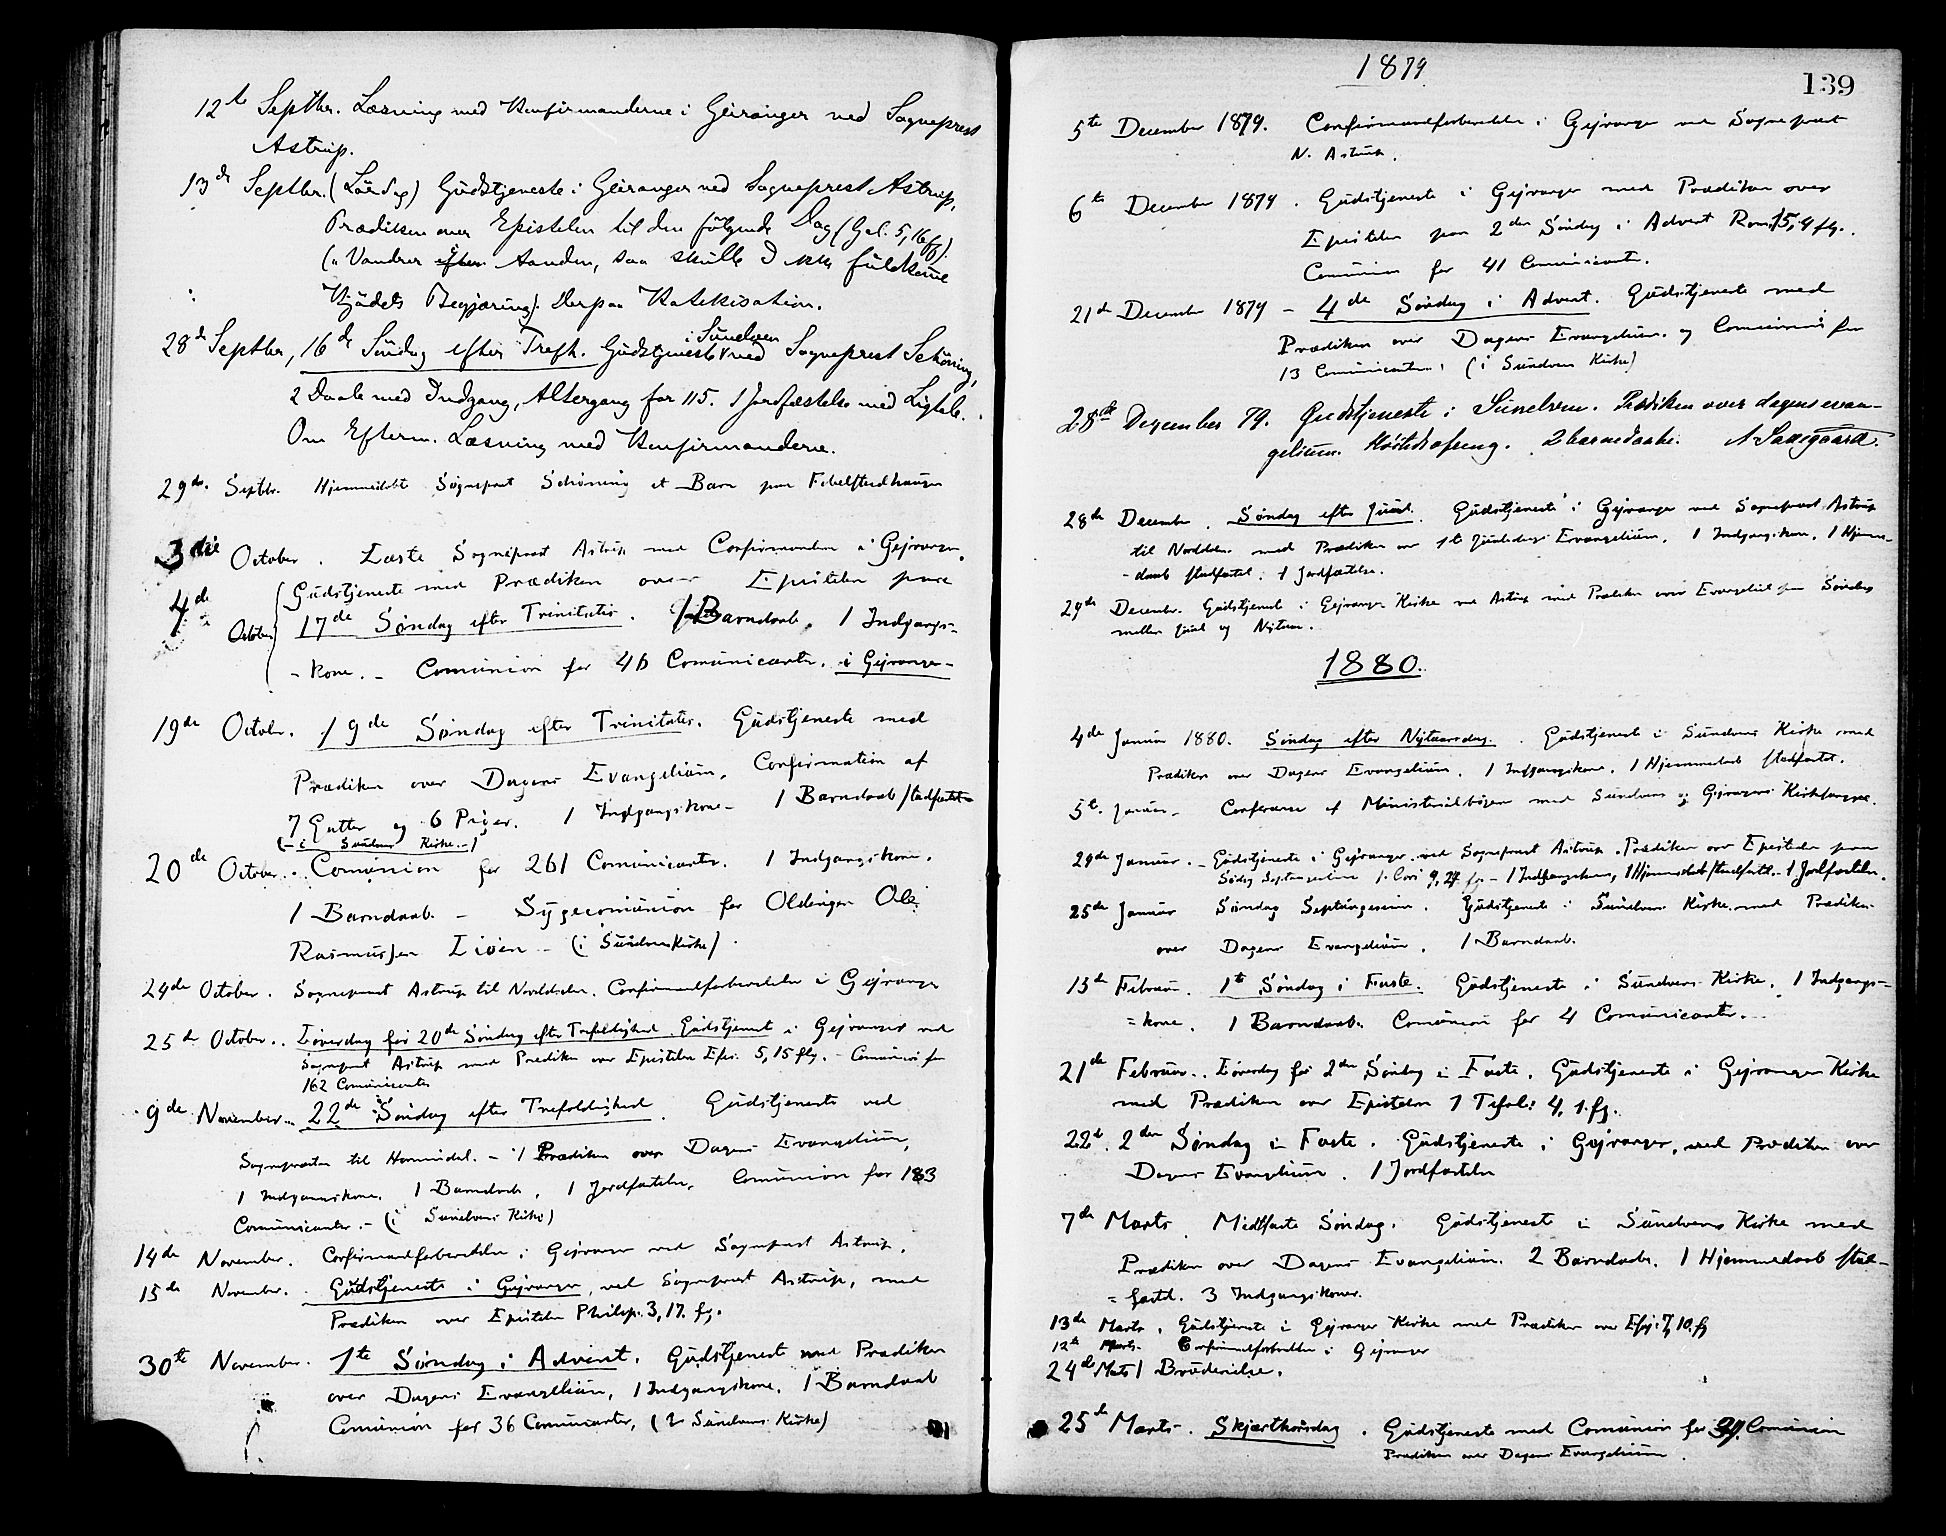 12te Septbr. Læsning med Konfirmanderne i Geiranger ved Sogneprest
Astrup.
13de Septbr. (Lördag) Gudstjeneste i Geiranger ved Sogneprest Astrup,
Prædiken over Epistelen til den følgende Dag (Gal. 5, 16 fg).
(„Vandrer efter Aanden, saa skulle I ikke fuldkomme
Kjødets Begjæring). Derpaa Katekisation.
28de Septbr, 16de Søndag efter Trefh. Gudstjeneste i Sunelven ved Sogneprest Schöning,
2 Daab med Indgang, Altergang for 115. 1 Jordfæstelse med Ligtale.
Om Efterm. Læsning med Konfirmanderne.
29de Septbr. Hjemmedøbt Sognepræst Schöning et Barn paa
3die October. Læste Sognepræst Astrup med Confirmanderne i Gejranger.
4de October Gudstjeneste med Prædiken over Epistelen paa
17de Søndag efter Trinitatis. 1 Barndaab, 1 Indgangs-
-kone. - Comunion for 46 Comunicanter. i Gejranger-
19de Octobr. 19de Søndag efter Trinitatis. Gudstjeneste med
Prædiken over Dagens Evangelium, Confirmation af
7 Gutter og 6 Piger. 1 Indgangskone - 1 Barndaab stadfæstet
(- i Sunelvens Kirke. -)
20de October. Comunion for 261 Comunicanter. 1 Indgangskone.
1 Barndaab. - Sygecomunion for Oldingen Ole
Rasmussen Liöen - (i Sunelvens Kirke).
24de October. Sognepræst Astrup til Norddalen. Confirmandforberedelse i Gejranger
25de October.. Løverdag før 20de Søndag efter Trefoldighed. Gudstjenest i Gejranger ved
Sognepræst Astrup med Prædiken over Epistelen Efes. 5, 15 flg. - Comunion for
162 Comunicanter
9de November.. 22de Søndag efter Trefoldighed. Gudstjeneste ved
Sognepræsten til Hornindal. - 1 Prædiken over Dagens Evangelium,
1 Indgangskone, 1 Barndaab, 1 Jordfæstelse, Comunion for 183
Comunicanter. - (i Sunelvens Kirke)
14de November. Confirmandforberedelse i Gejranger ved Sognepræst Astrup.
15de November. Gudstjeneste i Gejranger, ved Sognepræst Astrup, med
Prædiken over Epistelen Philip. 3, 17. fg.
30te November. 1te Søndag i Advent. Gudstjenest med Prædiken
over Dagens Evangelium, 1 Indgangskone. 1 Barndaab
Comunion for 36 Comunicanter, (i Sunelvens Kirke)
1879
139
5te December 1879. Confirmandforberedelse i Gejranger ved Sognepræst
N. Astrup.
6te December 1879. Gudstjeneste i Gejranger med Prædiken over
Epistelen paa 2den Søndag i Advent Rom. 15, 4 flg.
Comunion for 41 Comunicanter.
21de December 1879 - 4de Søndag i Advent. Gudstjeneste med
Prædiken over Dagens Evangelium. og Comunion for
13 Comunicanter. (i Sunelvens Kirke)
28de Dezember 79. Gudstjeneste i Sunelven. Prædiken over dagens evan-
gelium. 2 barnedaabe.
28de December. Søndag efter Juul. Gudstjeneste i Gejranger ved Sognepræst Astrup
til Norddalen med Prædiken over 1te Juledags Evangelium, 1 Indgangskone, 1 Hjemme-
-daab stadfæstet. 1 Jordfæstelse.
29de December. Gudstjenest i Gejranger Kirke ved Astrup med Prædiken over Evangeliet paa Søndag
mellem Juul og Nytaar.
1880.
4de Januar 1880. Søndag efter Nytaarsdag. Gudstjeneste i Sunelvens Kirke med
Prædiken over Dagens Evangelium. 1 Indgangskone, 1 Hjemmedaab stadfæstet.
5te Januar. Conferanse af Ministerialbøgene med Sunelvens og Gejrangers Kirkesangere.
24de Januar. - Gudstjeneste i Gejranger ved Sognepræst Astrup. Prædiken over Epistelen paa
Søndag Septuagesima 1. Cori 9, 24 fg - 1 Indgangskone, 1 Hjemmedaab stadfæstet. - 1 Jordfæstelse.
25de Januar Søndag Septuagesima. Gudstjeneste i Sunelvens Kirke med Prædiken
over Dagens Evangelium, 1 Barndaab.
15de Februar. 1te Søndag i Faste. Gudstjeneste i Sunelvens Kirke, 1 Indgangs=
=kone, 1 Barndaab. Comunion for 4 Comunicanter.
21de Februar. Løverdag før 2den Søndag i Faste. Gudstjeneste i Gejranger Kirke
med Prædiken over Epistelen 1 Tesal: 4, 1. fg.
22de. 2den Søndag i Faste. Gudstjeneste i Gejranger, med Prædiken over
Dagens Evangelium. 1 Jordfæstelse
7de Marts. Midtfaste Søndag. Gudstjeneste i Sunelvens Kirke med
Prædiken over Dagens Evangelium. 2 Barndaab. 1 Hjemmedaab stad-
=fæstet. 3 Indgangskoner.
13de Marts. Gudstjeneste i Gejranger Kirke med Prædiken over
12te Marts. Confirmandforberedelse i Gejranger
24de Marts 1 Brudevielse.
25de Marts. Skjærthorsdag. Gudstjeneste med Comunion for Comunion
Prædiken over Dagens Evangelium.